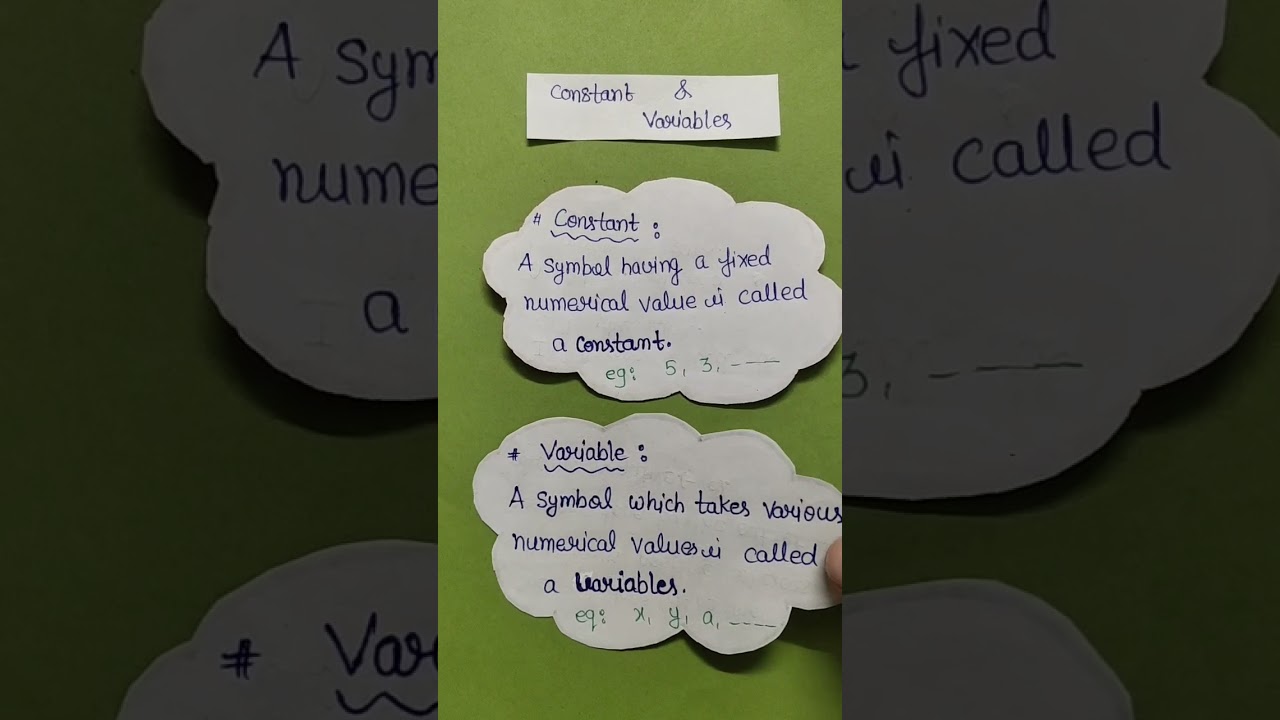 Constant &
Variables
# Constant :
A symbol having a fixed
numerical value is called
a constant.
eg: 5, 3, ----
# Variable :
A symbol which takes various
numerical values is called
a variables.
eg: x, y, a, ----